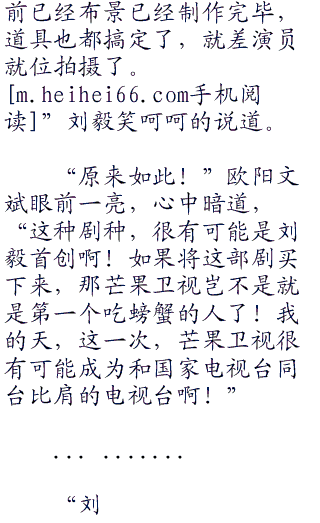 前已经布景已经制作完毕，
道具也都搞定了，就差演员
就位拍摄了。
[m.heihei66.com手机阅
读]”刘毅笑呵呵的说道。
“原来如此！”欧阳文
斌眼前一亮，心中暗道，
“这种剧种，很有可能是刘
毅首创啊！如果将这部剧买
下来，那芒果卫视岂不是就
是第一个吃螃蟹的人了！我
的天，这一次，芒果卫视很
有可能成为和国家电视台同
台比肩的电视台啊！”
... .......
“刘